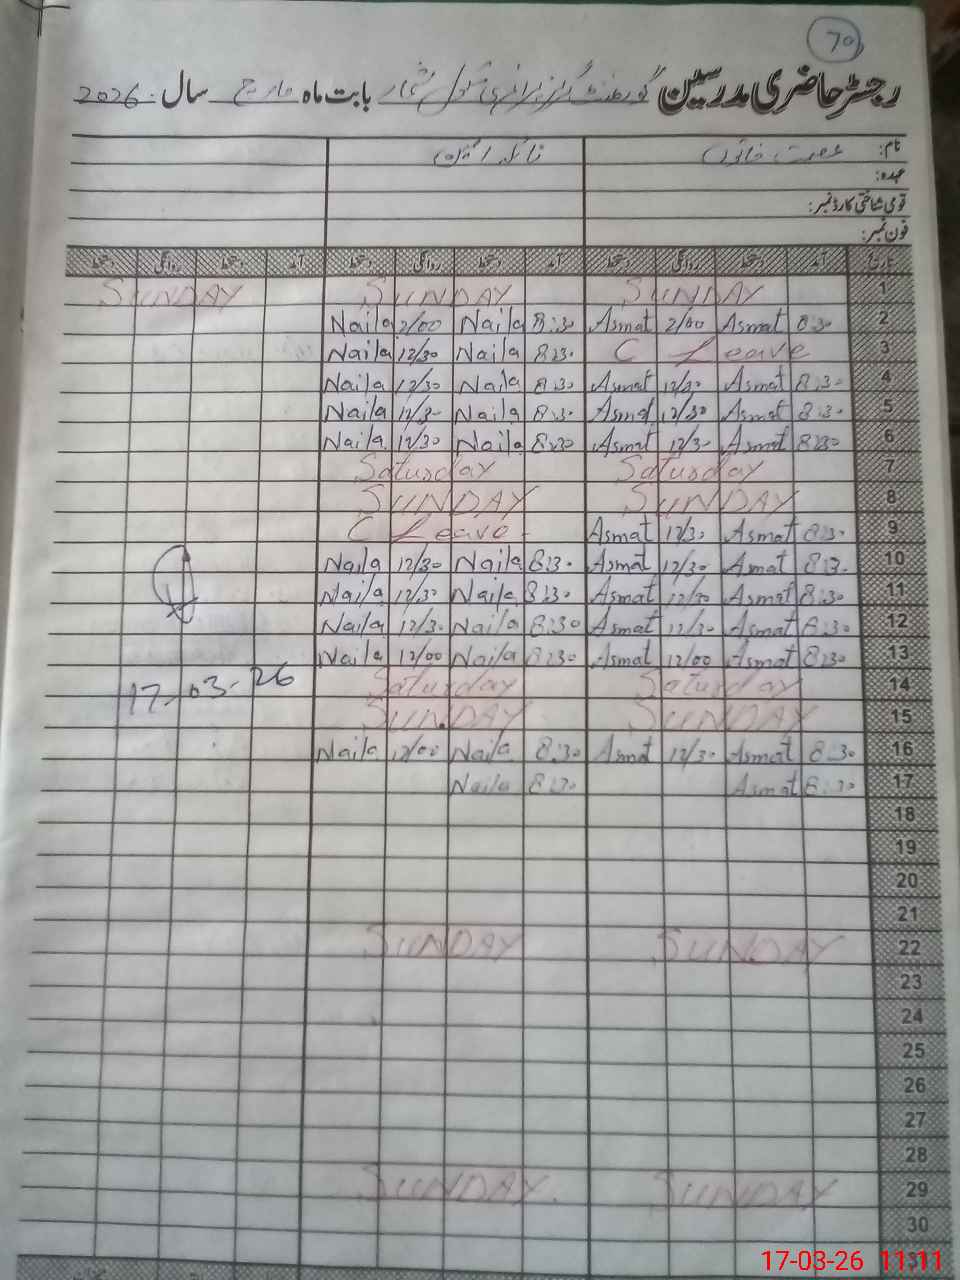 70
رجسٹر حاضری مدرسین گورنمنٹ گرلز پرائمری سکول بابت ماہ مارچ سال 2026
نام: عصمت خاتون نائلہ
عہدہ:
قومی شناختی کارڈ نمبر:
فون نمبر:
تاریخ آمد دستخط روانگی دستخط آمد دستخط روانگی دستخط آمد دستخط روانگی دستخط
SUNDAY SUNDAY SUNDAY 1
Naila 2/00 Naila 8:30 Asmat 2/00 Asmat 8:30 2
Naila 12/30 Naila 8:30 C Leave 3
Naila 12/30 Naila 8:30 Asmat 12/30 Asmat 8:30 4
Naila 12/30 Naila 8:30 Asmat 12/30 Asmat 8:30 5
Naila 12/30 Naila 8:30 Asmat 12/30 Asmat 8:30 6
Saturday Saturday 7
SUNDAY SUNDAY 8
C Leave Asmat 12/30 Asmat 8:30 9
Naila 12/30 Naila 8:30 Asmat 12/30 Asmat 8:30 10
Naila 12/30 Naila 8:30 Asmat 12/30 Asmat 8:30 11
Naila 12/30 Naila 8:30 Asmat 12/30 Asmat 8:30 12
Naila 12/00 Naila 8:30 Asmat 12/00 Asmat 8:30 13
17-03-26 Saturday Saturday 14
SUNDAY SUNDAY 15
Naila 12/00 Naila 8:30 Asmat 12/30 Asmat 8:30 16
Naila 8:30 Asmat 8:30 17
18
19
20
21
SUNDAY SUNDAY 22
23
24
25
26
27
28
SUNDAY SUNDAY 29
30
17-03-26 11:11